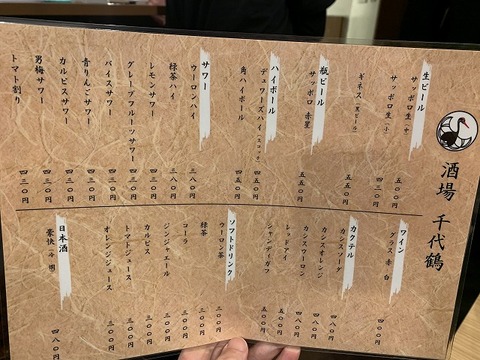 酒場 千代鶴
生ビール
サッポロ生（中） 五五〇円
サッポロ生（小） 四三〇円
ギネス（黒ビール） 五五〇円
瓶ビール
サッポロ 赤星 五五〇円
ハイボール
デュワーズハイ 五五〇円
角ハイボール 四五〇円
サワー
ウーロンハイ 三八〇円
緑茶ハイ 三八〇円
レモンサワー 四三〇円
グレープフルーツサワー 四三〇円
バイスサワー 四三〇円
青りんごサワー 四三〇円
カルピスサワー 四三〇円
男梅サワー 四三〇円
トマト割り 四三〇円
ワイン
グラス 赤 白 四〇〇円
カクテル
カシスソーダ 四八〇円
カシスオレンジ 四八〇円
カシスウーロン 四八〇円
レッドアイ 五〇〇円
シャンディガフ 五〇〇円
ソフトドリンク
ウーロン茶 二〇〇円
緑茶 二〇〇円
コーラ 三〇〇円
ジンジャエール 三〇〇円
カルピス 三〇〇円
トマトジュース 三〇〇円
オレンジジュース 三〇〇円
日本酒
豪快（冷 燗） 四八〇円